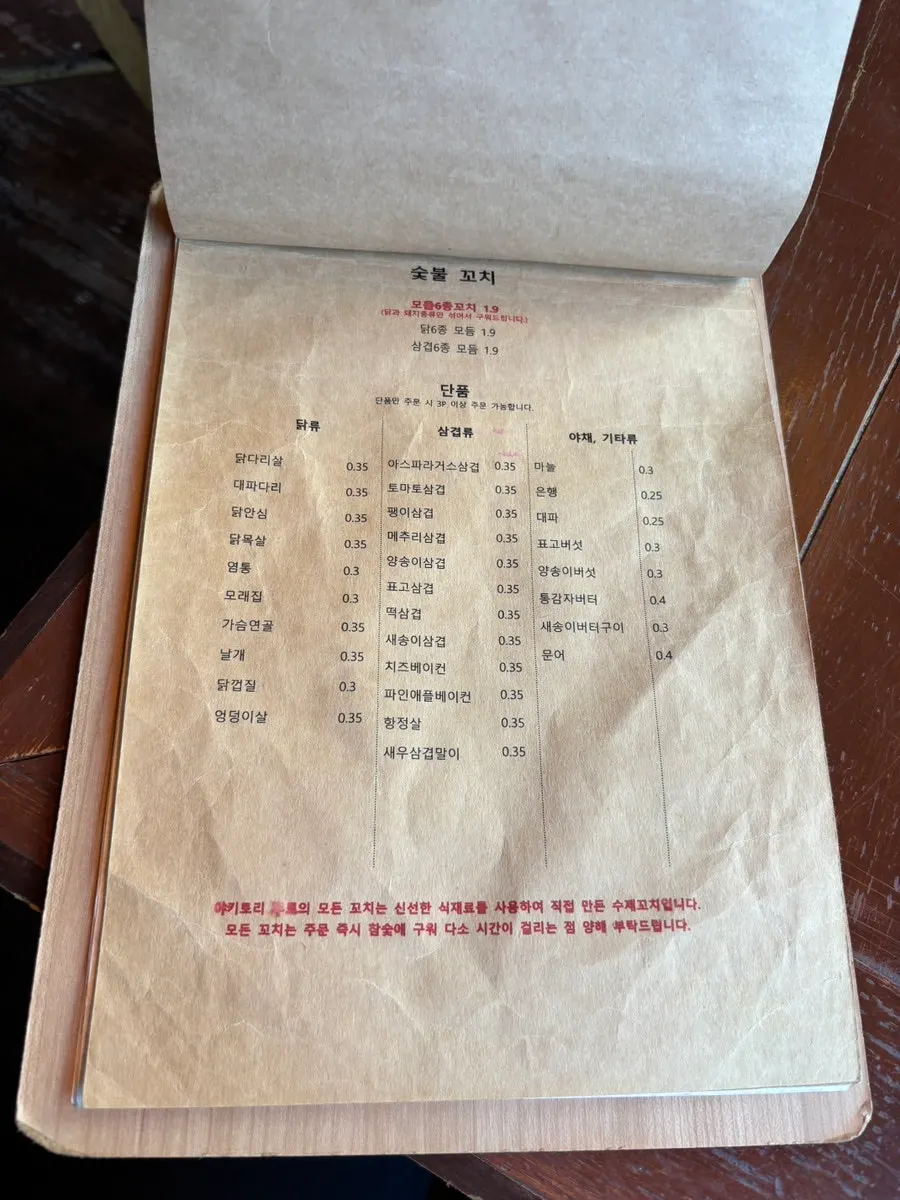 숯불 꼬치
모듬6종꼬치 1.9
(닭과 돼지종류만 섞어서 구워드립니다.)
닭6종 모듬 1.9
삼겹6종 모듬 1.9
단품
단품만 주문 시 3P 이상 주문 가능합니다.
닭류
닭다리살 0.35
대파다리 0.35
닭안심 0.35
닭목살 0.35
염통 0.3
모래집 0.3
가슴연골 0.35
날개 0.35
닭껍질 0.3
엉덩이살 0.35
삼겹류
아스파라거스삼겹 0.35
토마토삼겹 0.35
팽이삼겹 0.35
메추리삼겹 0.35
양송이삼겹 0.35
표고삼겹 0.35
떡삼겹 0.35
새송이삼겹 0.35
치즈베이컨 0.35
파인애플베이컨 0.35
항정살 0.35
새우삼겹말이 0.35
야채, 기타류
마늘 0.3
은행 0.25
대파 0.25
표고버섯 0.3
양송이버섯 0.3
통감자버터 0.4
새송이버터구이 0.3
문어 0.4
야키토리 의 모든 꼬치는 신선한 식재료를 사용하여 직접 만든 수제꼬치입니다.
모든 꼬치는 주문 즉시 참숯에 구워 다소 시간이 걸리는 점 양해 부탁드립니다.